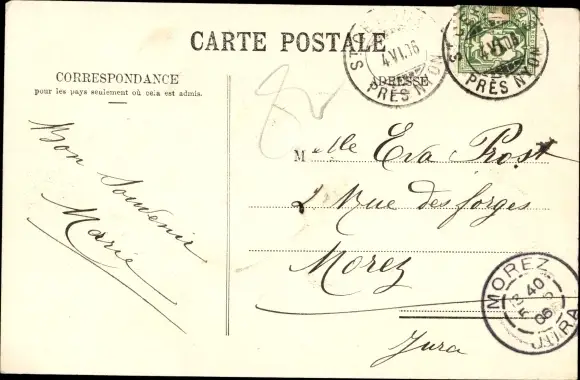 CARTE POSTALE
CORRESPONDANCE
pour les pays seulement où cela est admis.
ADRESSE
ST
4 VI. 06
PRÈS NYON
VI. 06
PRÈS NYON
Bon Souvenir
Marie
M elle Eva Prost
2 Rue des forges
Morez
Jura
MOREZ
40
06
JURA